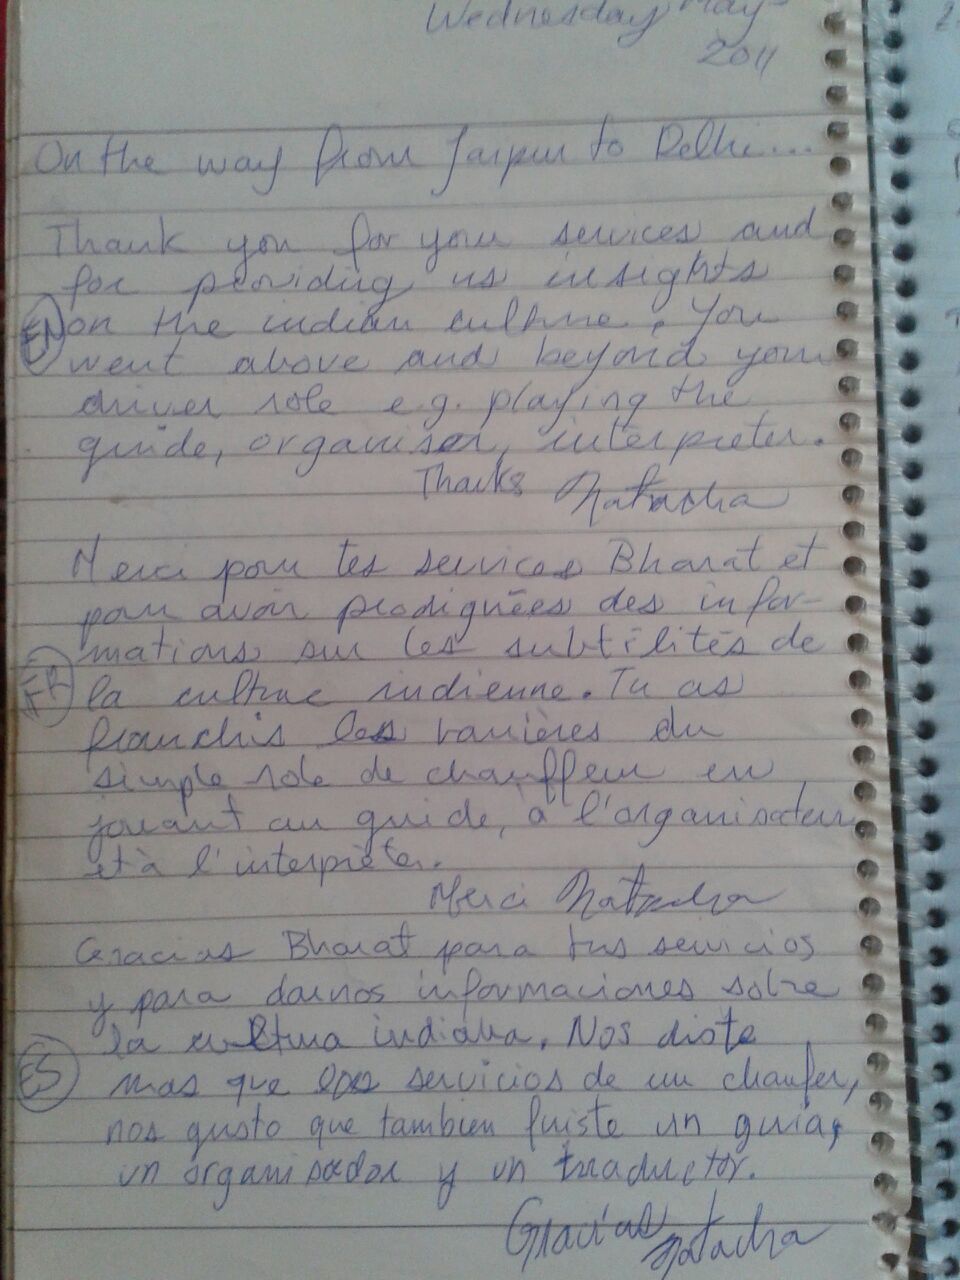 Wednesday May
2011
On the way from Jaipur to Delhi....
Thank you for your services and
for providing us insights
EN
on the indian culture. You
went above and beyond your
driver role e.g. playing the
guide, organiser, interpreter.
Thanks Natacha
Merci pour tes services Bharat et
pour avoir prodiguées des infor-
mations sur les subtilités de
FR
la culture indienne. Tu as
franchis les barrières du
simple role de chauffeur en
jouant au guide, à l'organisateur
et à l'interprèter.
Merci Natacha
Gracias Bharat para tus servicios
y para darnos informaciones sobre
la cultura indiana. Nos diste
ES
mas que los servicios de un chaufer,
nos gusto que tambien fuiste un guia,
un organisador y un traductor.
Gracias Natacha